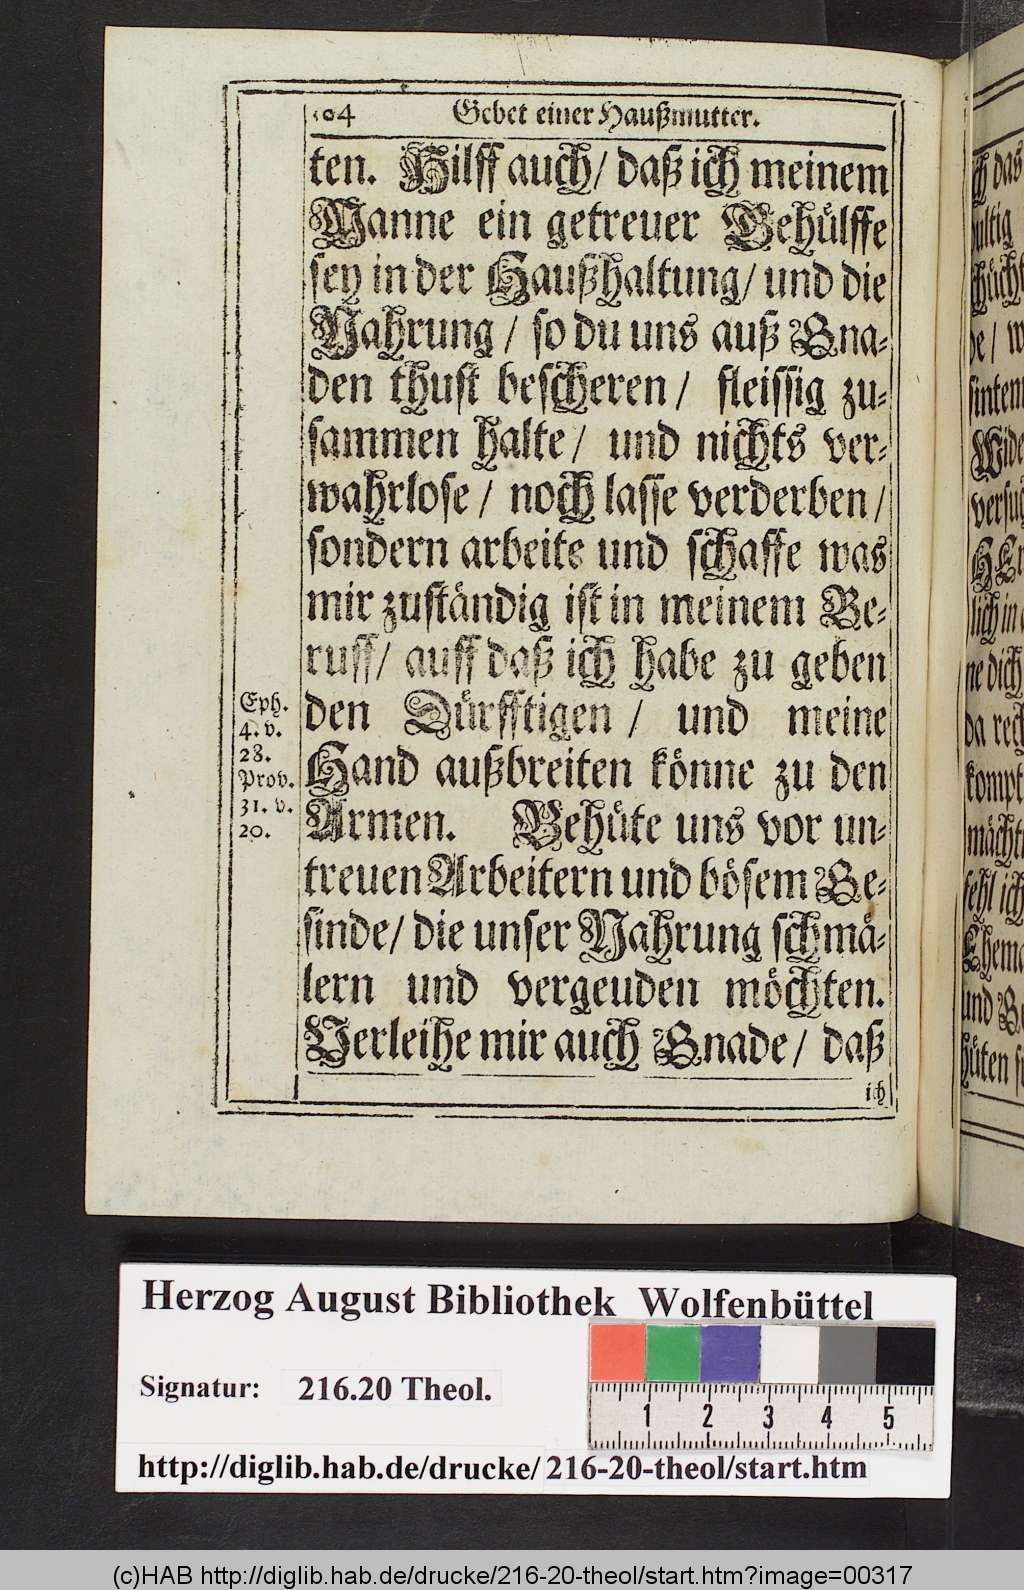 104 Gebet einer Haußmutter.
ten. Hilff auch/ daß ich meinem
Manne ein getreuer Gehülffe
sey in der Haußhaltung/ und die
Nahrung/ so du uns auß Gna-
den thust bescheren/ fleissig zu-
sammen halte/ und nichts ver-
wahrlose/ noch lasse verderben/
sondern arbeite und schaffe was
mir zuständig ist in meinem Be-
ruff/ auff daß ich habe zu geben
den Dürfftigen/ und meine
Hand außbreiten könne zu den
Armen. Behüte uns vor un-
treuen Arbeitern und bösem Ge-
sinde/ die unser Nahrung schmä-
lern und vergeuden möchten.
Verleihe mir auch Gnade/ daß
ich
Eph.
4. v.
28.
Prov.
31. v.
20.
ch das
schücht
sintem
Wide
versuc
HEr
lich in
ne dich
da rech
kompt
mächti
fehl ich
Ehema
und G
hüten s
Herzog August Bibliothek Wolfenbüttel
Signatur: 216.20 Theol.
1 2 3 4 5
http://diglib.hab.de/drucke/216-20-theol/start.htm
(c)HAB http://diglib.hab.de/drucke/216-20-theol/start.htm?image=00317